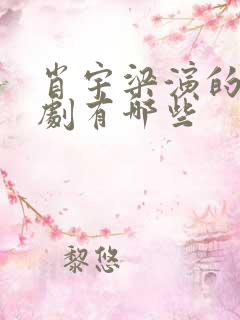 肖宇梁演的
劇有哪些
黎悠